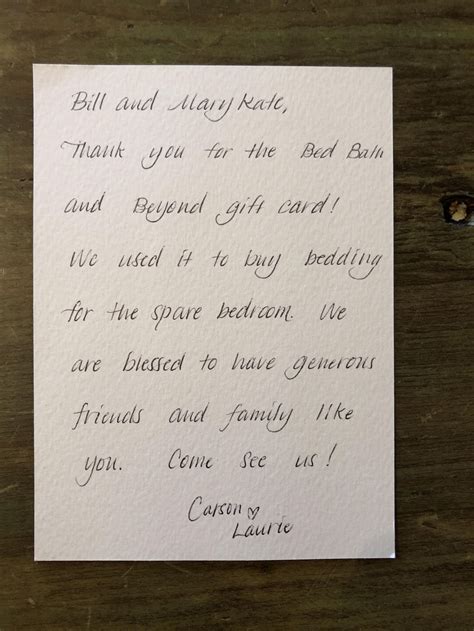 Bill and Mary Kate,
Thank you for the Bed Bath
and Beyond gift card!
We used it to buy bedding
for the spare bedroom. We
are blessed to have generous
friends and family like
you. Come see us!
Carson ♡
Laurie